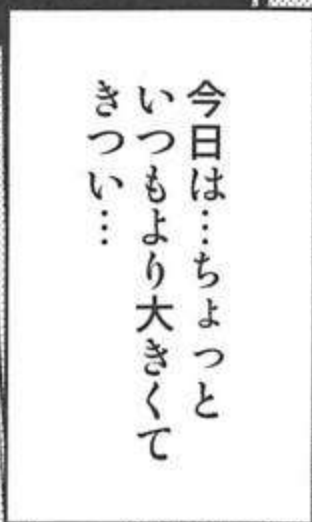 今日は…ちょっと
いつもより大きくて
きつい…